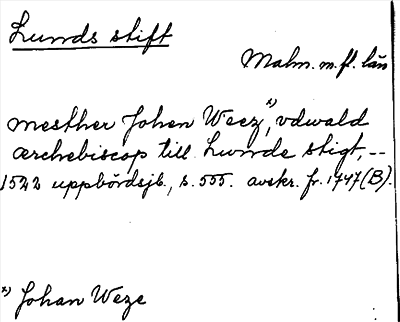 Lunds stift
Malm. m. fl. län
mesther Johen Weez,ˣ⁾ vdwald
ærchebiscop till Lunde stigt, --
1522 uppbördsjb., s. 555. avskr. fr. 1747 (B).
ˣ⁾ Johan Weze